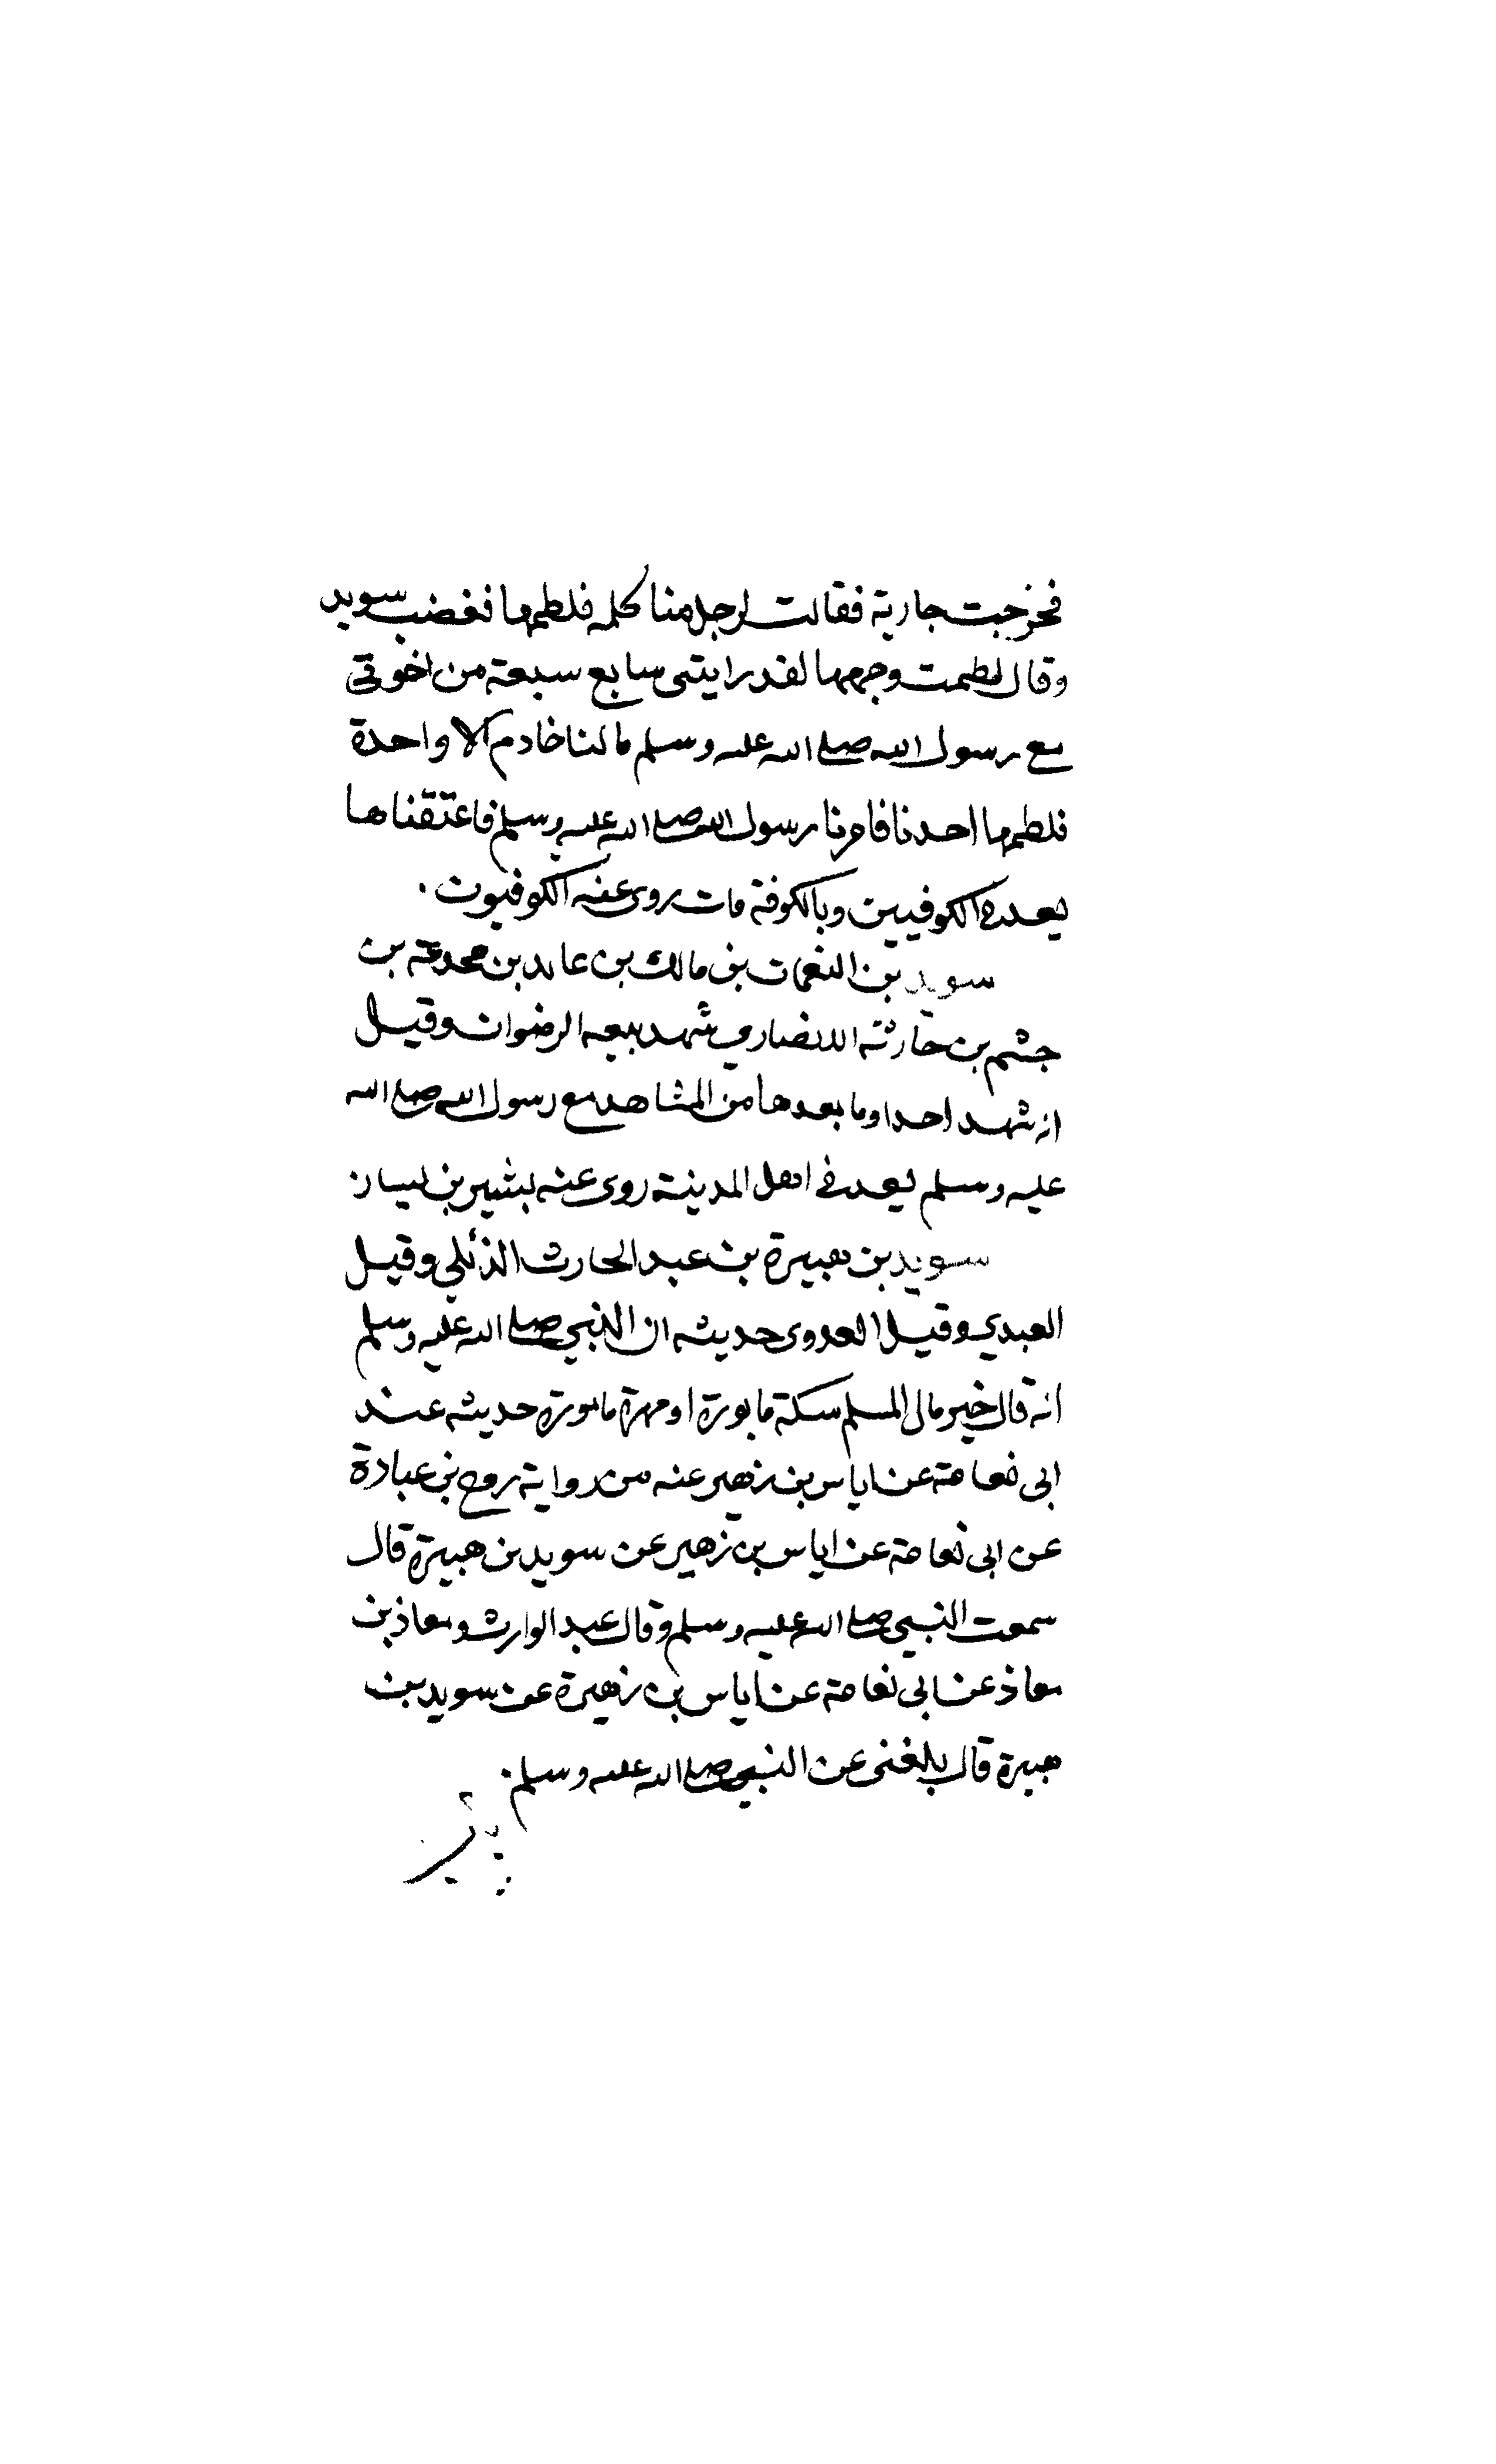 فخرجت جارية فقالت لرجل منا كلمه فلطمها فغضب سويد
وقال لطمت وجهها لقد رايتنى سابع سبعة من اخوتى
مع رسول الله صلى الله عليه وسلم مالنا خادم الا واحدة
فلطمها احدنا فامرنا رسول الله صلى الله عليه وسلم فاعتقناها
يعد فى الكوفيين وبالكوفة مات روى عنه الكوفيون.
سويد بن النعمان بن مالك بن عايد بن مجدعة بن
جشم بن حارثه الانصاري شهد بيعه الرضوان وقيل
انه شهد احدا وما بعدها من المشاهد مع رسول الله صلى الله
عليه وسلم يعد فى اهل المدينة روى عنه بشير بن يسار.
سويد بن هبيرة بن عبد الحارث الدئلي وقيل
العبدي وقيل العدوى حديثه ان النبي صلى الله عليه وسلم
انه قال خير مال المسلم سكة مابورة او مهرة مامورة حديثه عند
ابى نعامة عن اياس بن زهير عنه من رواية روح بن عبادة
عن ابى نعامة عن اياس بن زهير عن سويد بن هبيرة قال
سمعت النبي صلى الله عليه وسلم وقال عبد الوارث ومعاذ بن
معاذ عن ابى نعامة عن اياس بن زهيرة عن سويد بن
هبيرة قال بلغنى عن النبي صلى الله عليه وسلم.